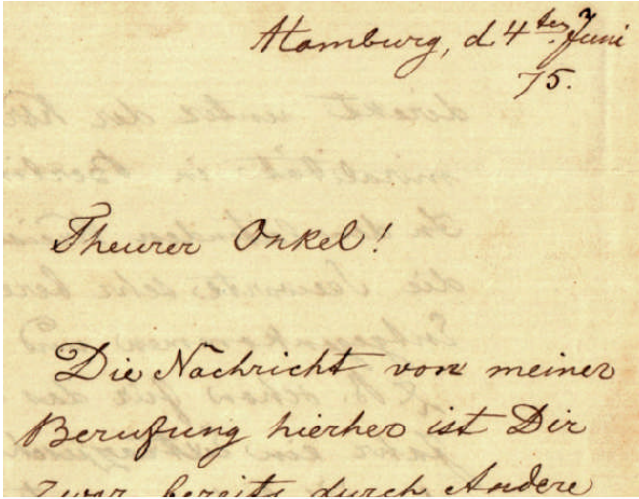 Hamburg, d. 4ten Juni
75.
Theurer Onkel!
Die Nachricht von meiner
Berufung hierher ist Dir
zwar bereits durch Andere